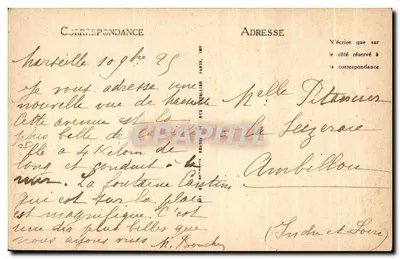 CORRESPONDANCE
Marseille 10 9bre 25
Je vous adresse une
nouvelle vue de Marseille
Cette avenue est la
plus belle de
Elle a 4 Kilom de
long et conduit à la
mer. La fontaine Cantini
qui est sur la place
est magnifique. C'est
une des plus belles que
nous ayons vues M.
ADRESSE
N'écrire que sur
le côté réservé à
la correspondance
Melle
la
Ambillou
(Indre et Loire)
CPARAMA